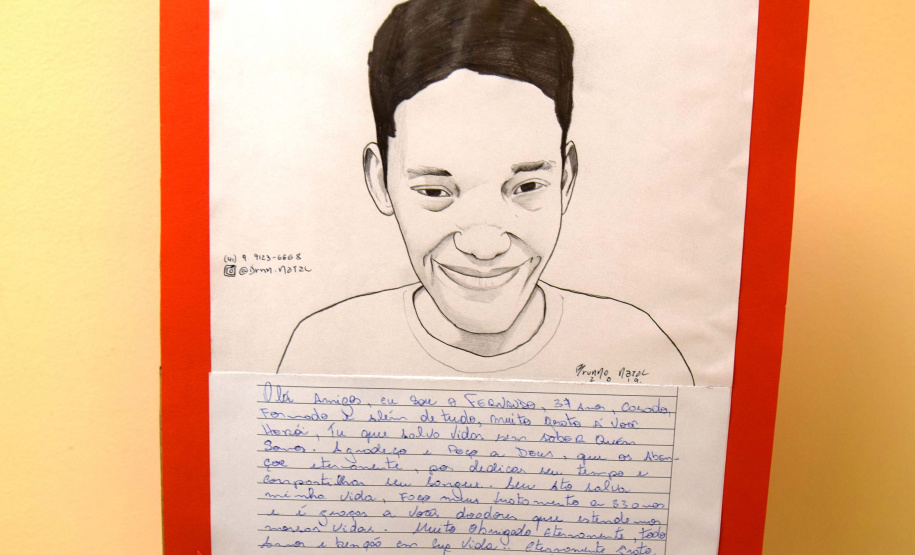 (41) 9 9123-6668
@Brnn.Natal
Brunno Natal
2019.
Olá Amigos, eu sou o Fernando, 37 anos, Casado,
Formado e além de tudo, muito Grato à Você
Herói, Tu que salva vidas sem saber Quem
Somos. Agradeço e Peço a Deus, que os Aben-
çoe eternamente, por dedicar seu tempo e
compartilhar seu Sangue. Seu ato salva
minha vida, Faço meus tratamento a 33 anos
e é graças a Vocês doadores que estende-mos
nossas Vidas. Muito Obrigado Eternamente, todo
Amor e benção em sua Vida!! Eternamente Grato